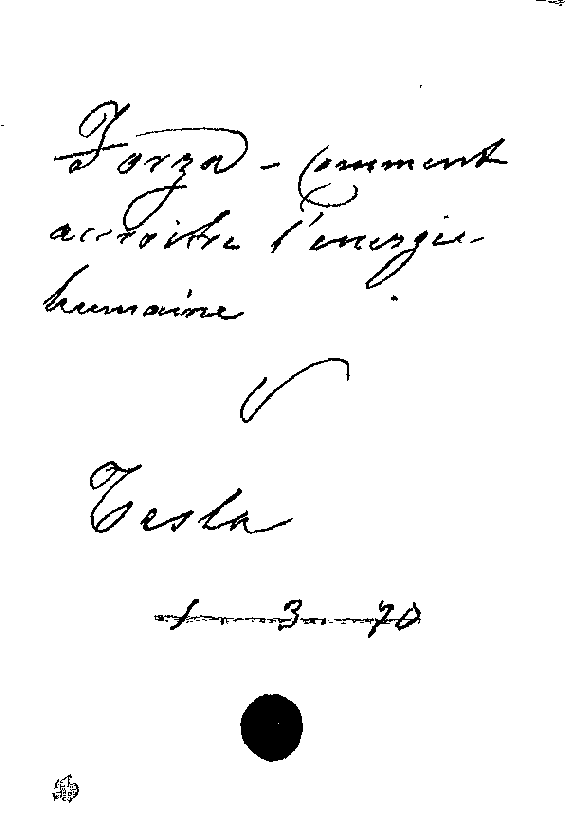 Forza - Comment
accroitre l'energie
humaine
Tesla
1. 3. 70